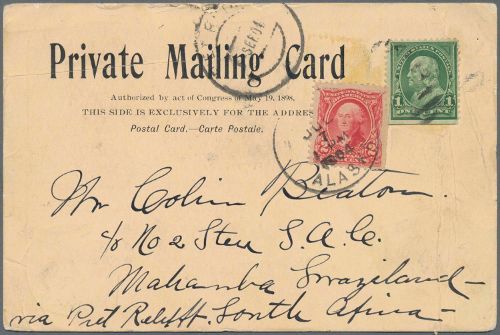 Private Mailing Card
Authorized by act of Congress of May 19, 1898.
THIS SIDE IS EXCLUSIVELY FOR THE ADDRESS
Postal Card.—Carte Postale.
SEP 04
1 1
ONE CENT
JUL
ALAS
Mr Colin Beaton.
c/o No 2 Store S.A.C.
Mahamba Swaziland
via Piet Relief. South Africa